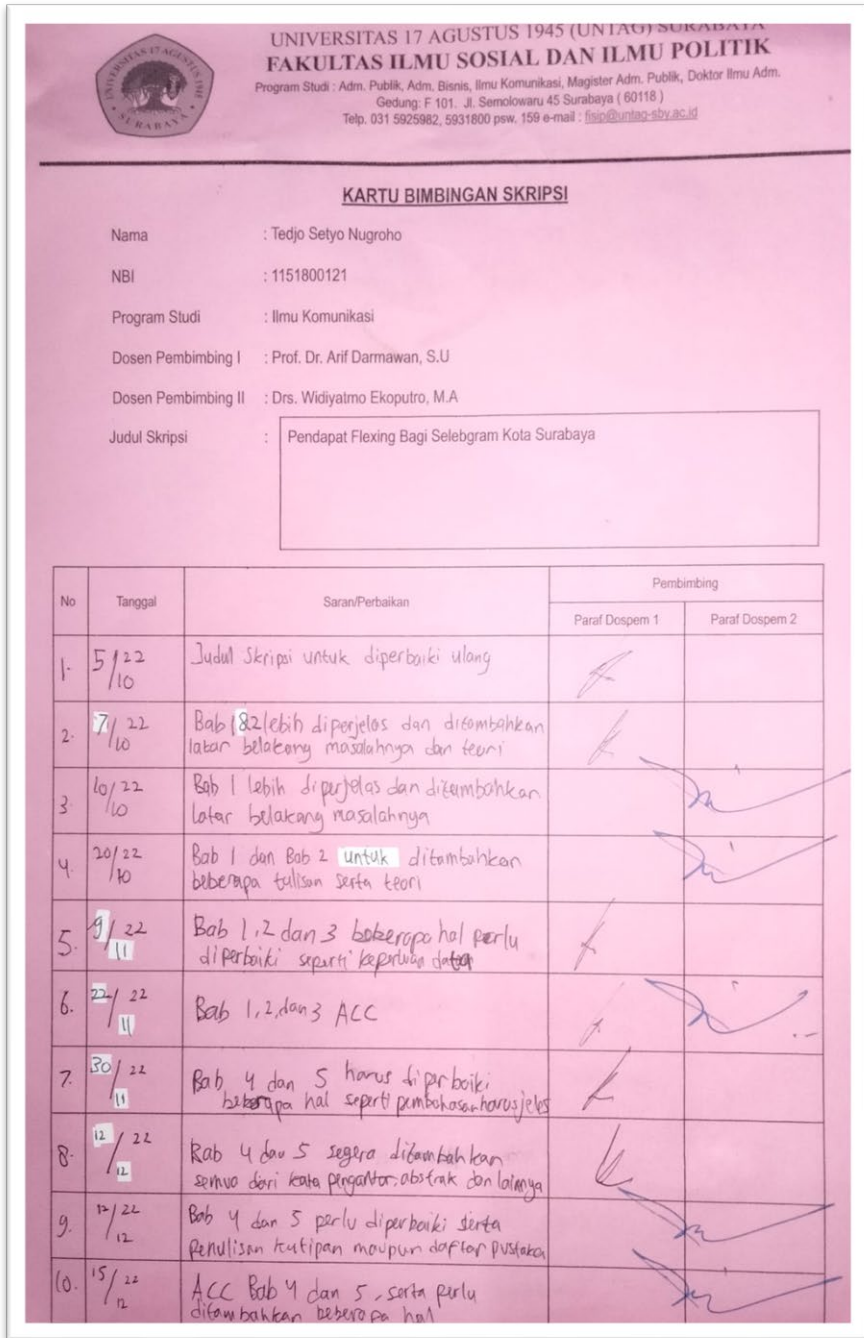 UNIVERSITAS 17 AGUSTUS 1945 (UNTAG) SURABAYA
FAKULTAS ILMU SOSIAL DAN ILMU POLITIK
Program Studi : Adm. Publik, Adm. Bisnis, Ilmu Komunikasi, Magister Adm. Publik, Doktor Ilmu Adm.
Gedung: F 101. Jl. Semolowaru 45 Surabaya ( 60118 )
Telp. 031 5925982, 5931800 psw. 159 e-mail : fisip@untag-sby.ac.id
UNIVERSITAS 17 AGUSTUS 1945
SURABAYA
KARTU BIMBINGAN SKRIPSI
Nama : Tedjo Setyo Nugroho
NBI : 1151800121
Program Studi : Ilmu Komunikasi
Dosen Pembimbing I : Prof. Dr. Arif Darmawan, S.U
Dosen Pembimbing II : Drs. Widiyatmo Ekoputro, M.A
Judul Skripsi : Pendapat Flexing Bagi Selebgram Kota Surabaya
No Tanggal Saran/Perbaikan Pembimbing
Paraf Dospem 1 Paraf Dospem 2
1. 5/22 Judul Skripsi untuk diperbaiki ulang
/10
2. 7/22 Bab 1&2 lebih diperjelas dan ditambahkan
/10 latar belakang masalahnya dan teori
3. 10/22 Bab 1 lebih diperjelas dan ditambahkan
/10 latar belakang masalahnya
4. 20/22 Bab 1 dan Bab 2 untuk ditambahkan
/10 beberapa tulisan serta teori
5. 9/22 Bab 1,2 dan 3 beberapa hal perlu
/11 diperbaiki seperti keperluan data
6. 22/22 Bab 1,2,dan 3 ACC
/11
7. 30/22 Bab 4 dan 5 harus diperbaiki
/11 beberapa hal seperti pembahasan harus jelas
8. 12/22 Bab 4 dan 5 segera ditambahkan
/12 semua dari kata pengantar, abstrak dan lainnya
9. 12/22 Bab 4 dan 5 perlu diperbaiki serta
/12 Penulisan kutipan maupun daftar pustaka
10. 15/22 ACC Bab 4 dan 5, serta perlu
/12 ditambahkan beberapa hal